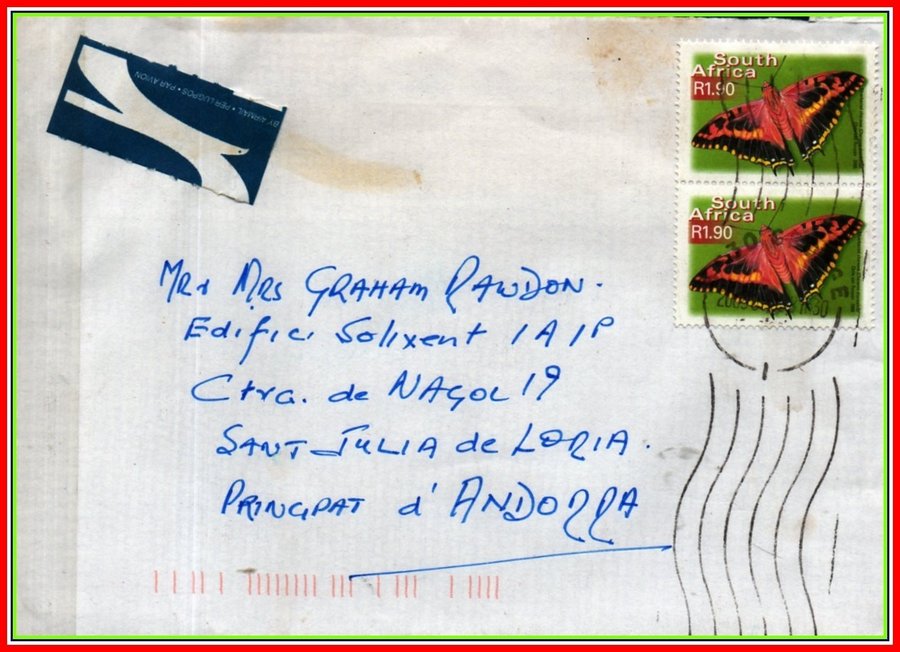 BY AIRMAIL • PER LUGPOS • PAR AVION
South
Africa
R1.90
South
Africa
R1.90
Mr & Mrs GRAHAM RAWDON.
Edifici Solixent 1A 1P
Ctra. de NAGOL 19
SANT JULIA de LORIA.
PRINCIPAT d'ANDORRA